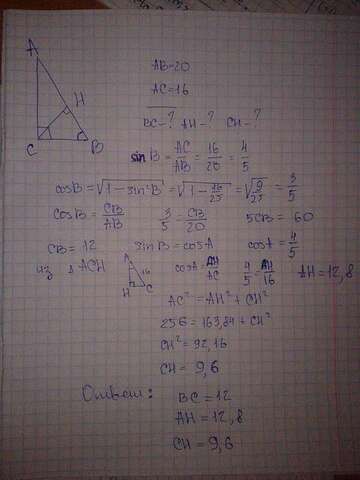 A
H
C B
AB=20
AC=16
BC-? AH-? CH-?
sin B = AC/AB = 16/20 = 4/5
cosB = √(1-sin²B) = √(1-16/25) = √(9/25) = 3/5
cosB = CB/AB 3/5 = CB/20 5CB = 60
CB = 12 sinB = cosA cosA = 4/5
из Δ ACH A 16 H C cosA = AH/AC 4/5 = AH/16 AH=12,8
AC² = AH² + CH²
256 = 163,84 + CH²
CH² = 92,16
CH = 9,6
Ответ: BC = 12
AH = 12,8
CH = 9,6